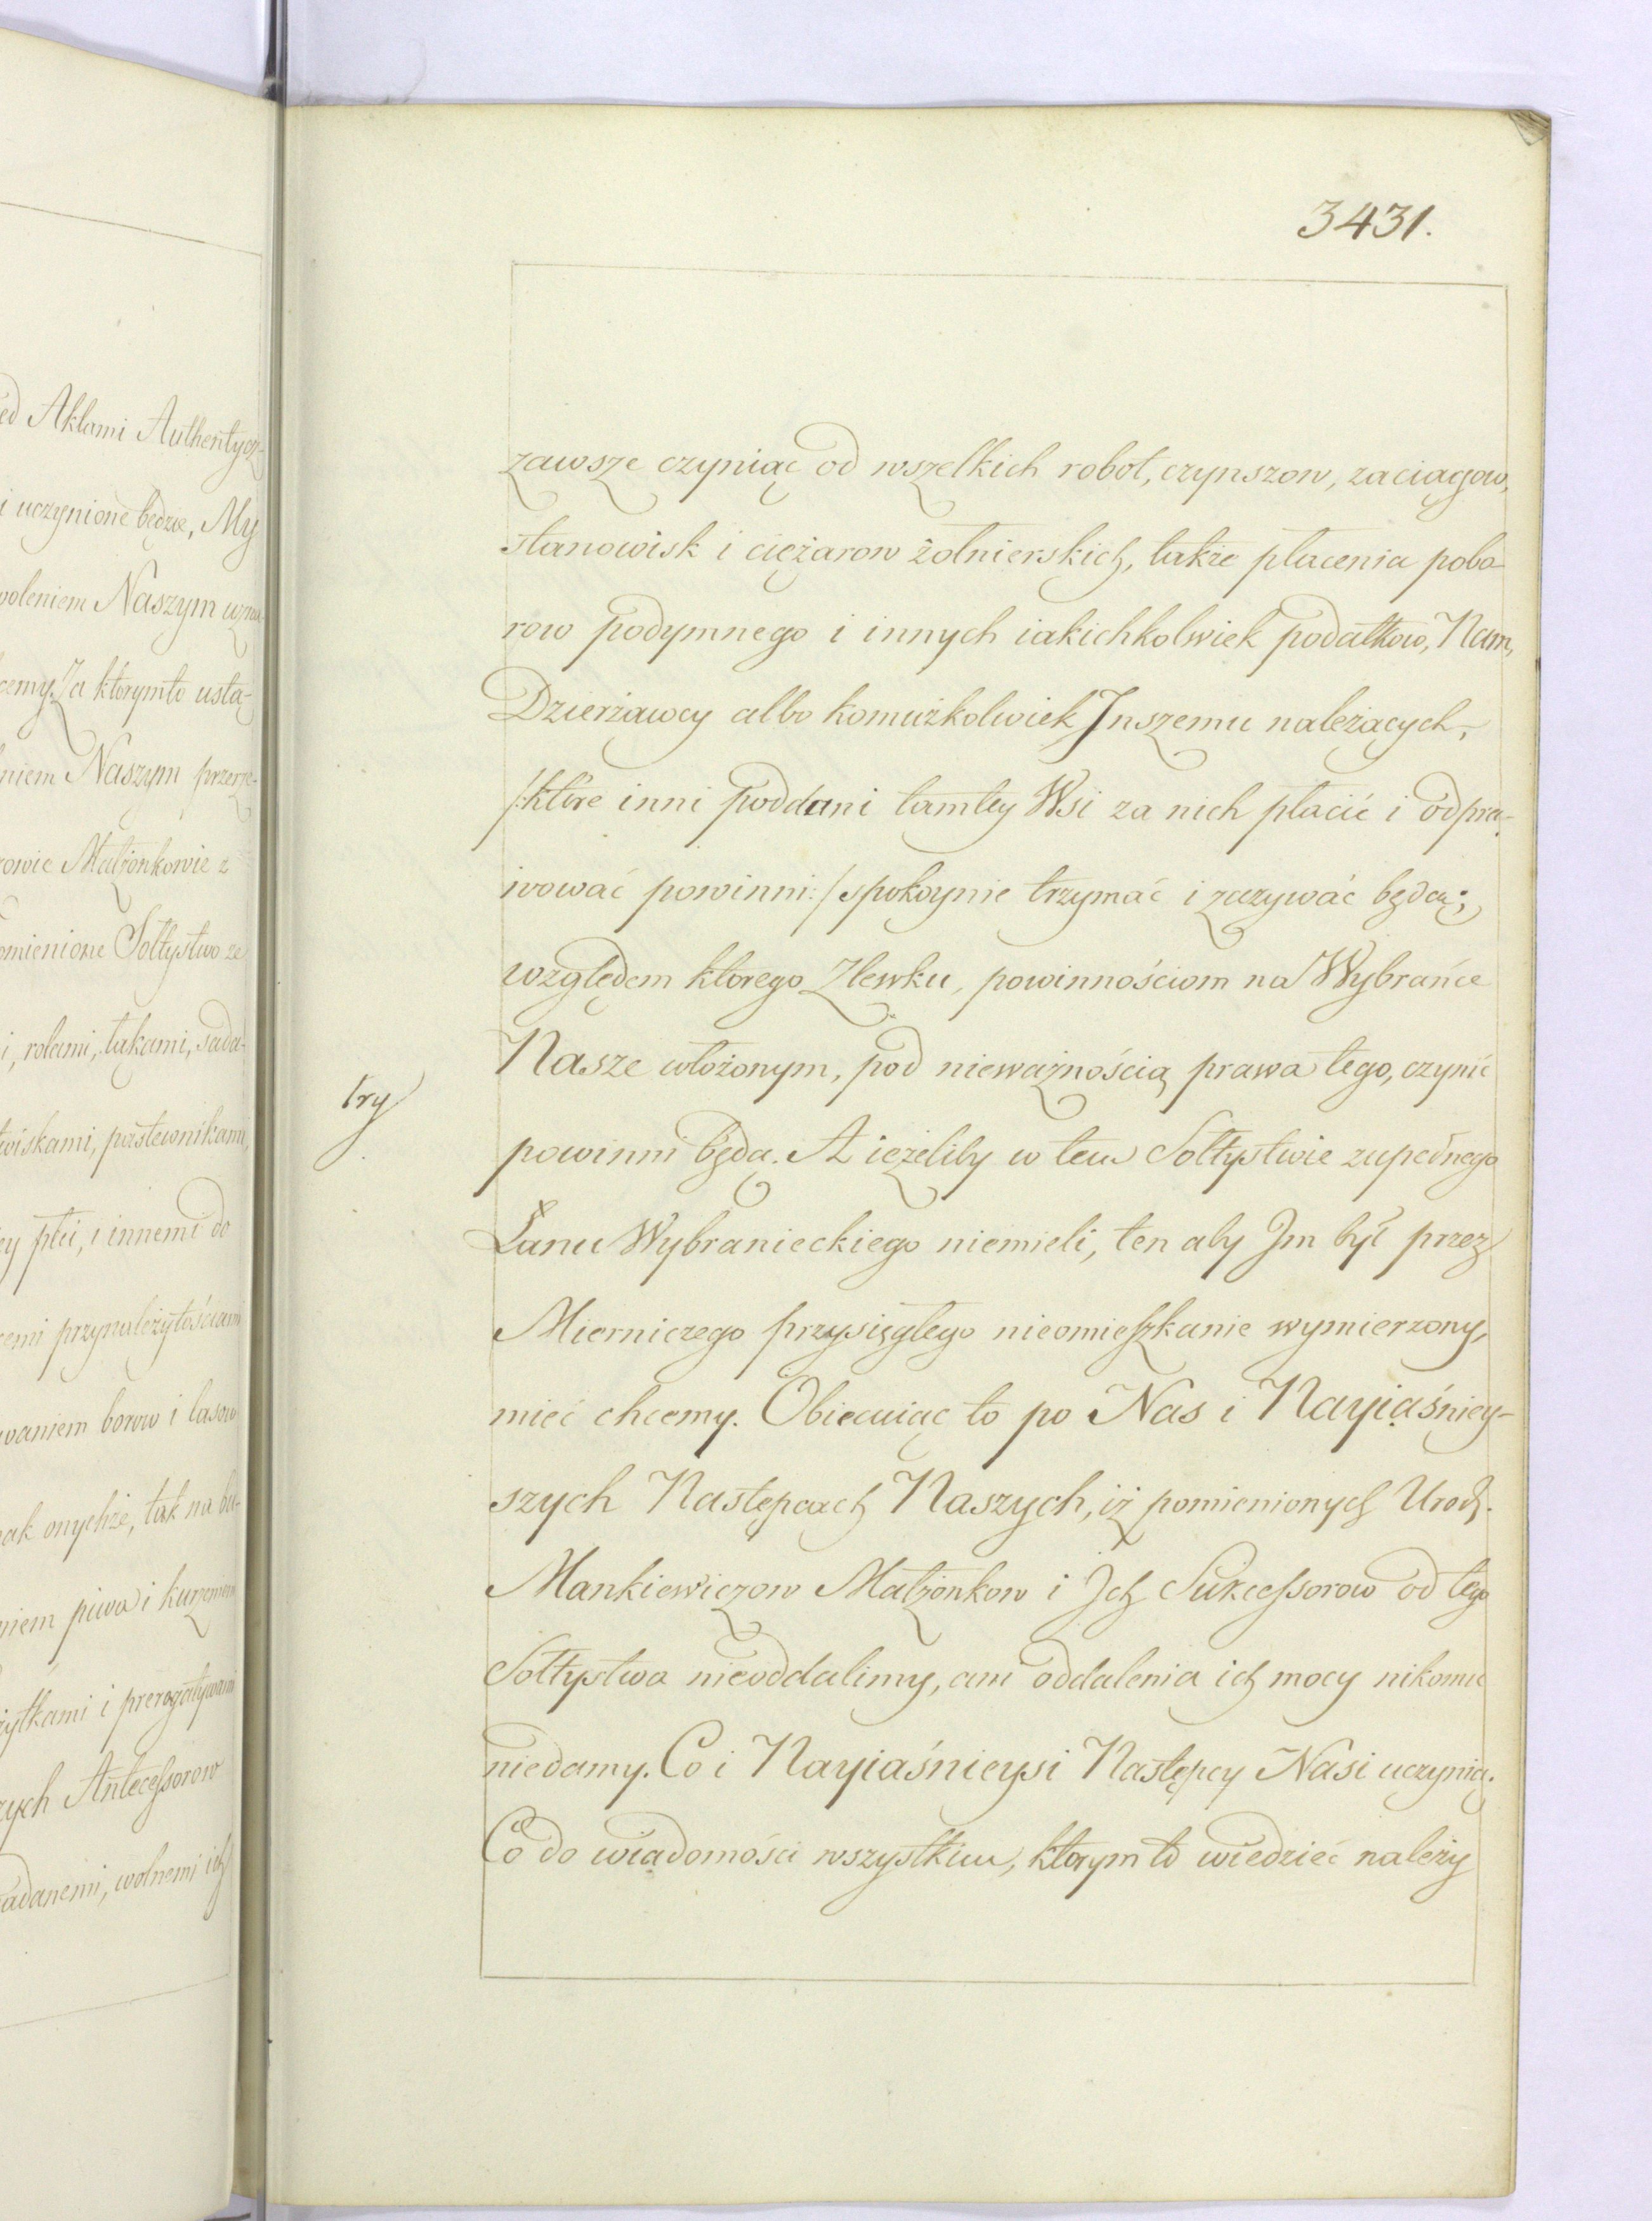 3431.
zawsze czyniąc od wszelkich robot, czynszow, zaciągow,
stanowisk i ciężarow żołnierskich, także płacenia pobo-
row podymnego i innych iakichkolwiek podatkow, Nam,
Dzierżawcy albo komużkolwiek Jnszemu należących,
/:ktore inni poddani tamtey Wsi za nich płacić i odpra-
wować powinni:/ spokoynie trzymać i zażywać będą;
względem ktorego Zlewku, powinnościom na Wybrańce
Nasze włożonym, pod nieważnością prawa tego, czynić
try
powinni będą. A ieżeliby w tem Sołtystwie zupełnego
Łanu Wybranieckiego niemieli, ten aby Jm był przez
Mierniczego przysięgłego nieomieszkanie wymierzony,
mieć chcemy. Obiecuiąc to po Nas i Nayiaśniey-
szych Następcach Naszych, iż pomienionych Urodz.
Mankiewiczow Małżonkow i Jch Sukcessorow od tego
Sołtystwa nieoddalimy, ani oddalenia ich mocy nikomu
niedamy. Co i Nayiaśnieysi Następcy Nasi uczynią.
Co do wiadomości wszystkim, ktorym to wiedzieć należy
ed Aktami Authentycz-
i uczynione będzie, My
woleniem Naszym
cemy. Za ktorymto usta-
niem Naszym przerze-
rowie Małżonkowie z
omienione Sołtystwo ze
i, rolami, łąkami, sada-
wiskami, pastewnikami,
ey płci, i innemi do
cemi przynależytościami
waniem borow i lasow
nak onychże, tak na bu-
niem piwa i kurzeniem
żytkami i prerogatywami
szych Antecessorow
adanemi, wolnemi ich